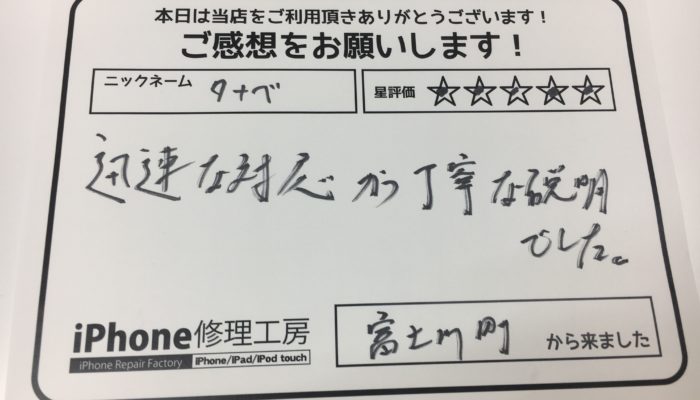 本日は当店をご利用頂きありがとうございます！
ご感想をお願いします！
ニックネーム タナベ 星評価 ☆☆☆☆☆
迅速な対応かつ丁寧な説明
でした。
iPhone修理工房
iPhone Repair Factory iPhone/iPad/iPod touch
富士川町 から来ました